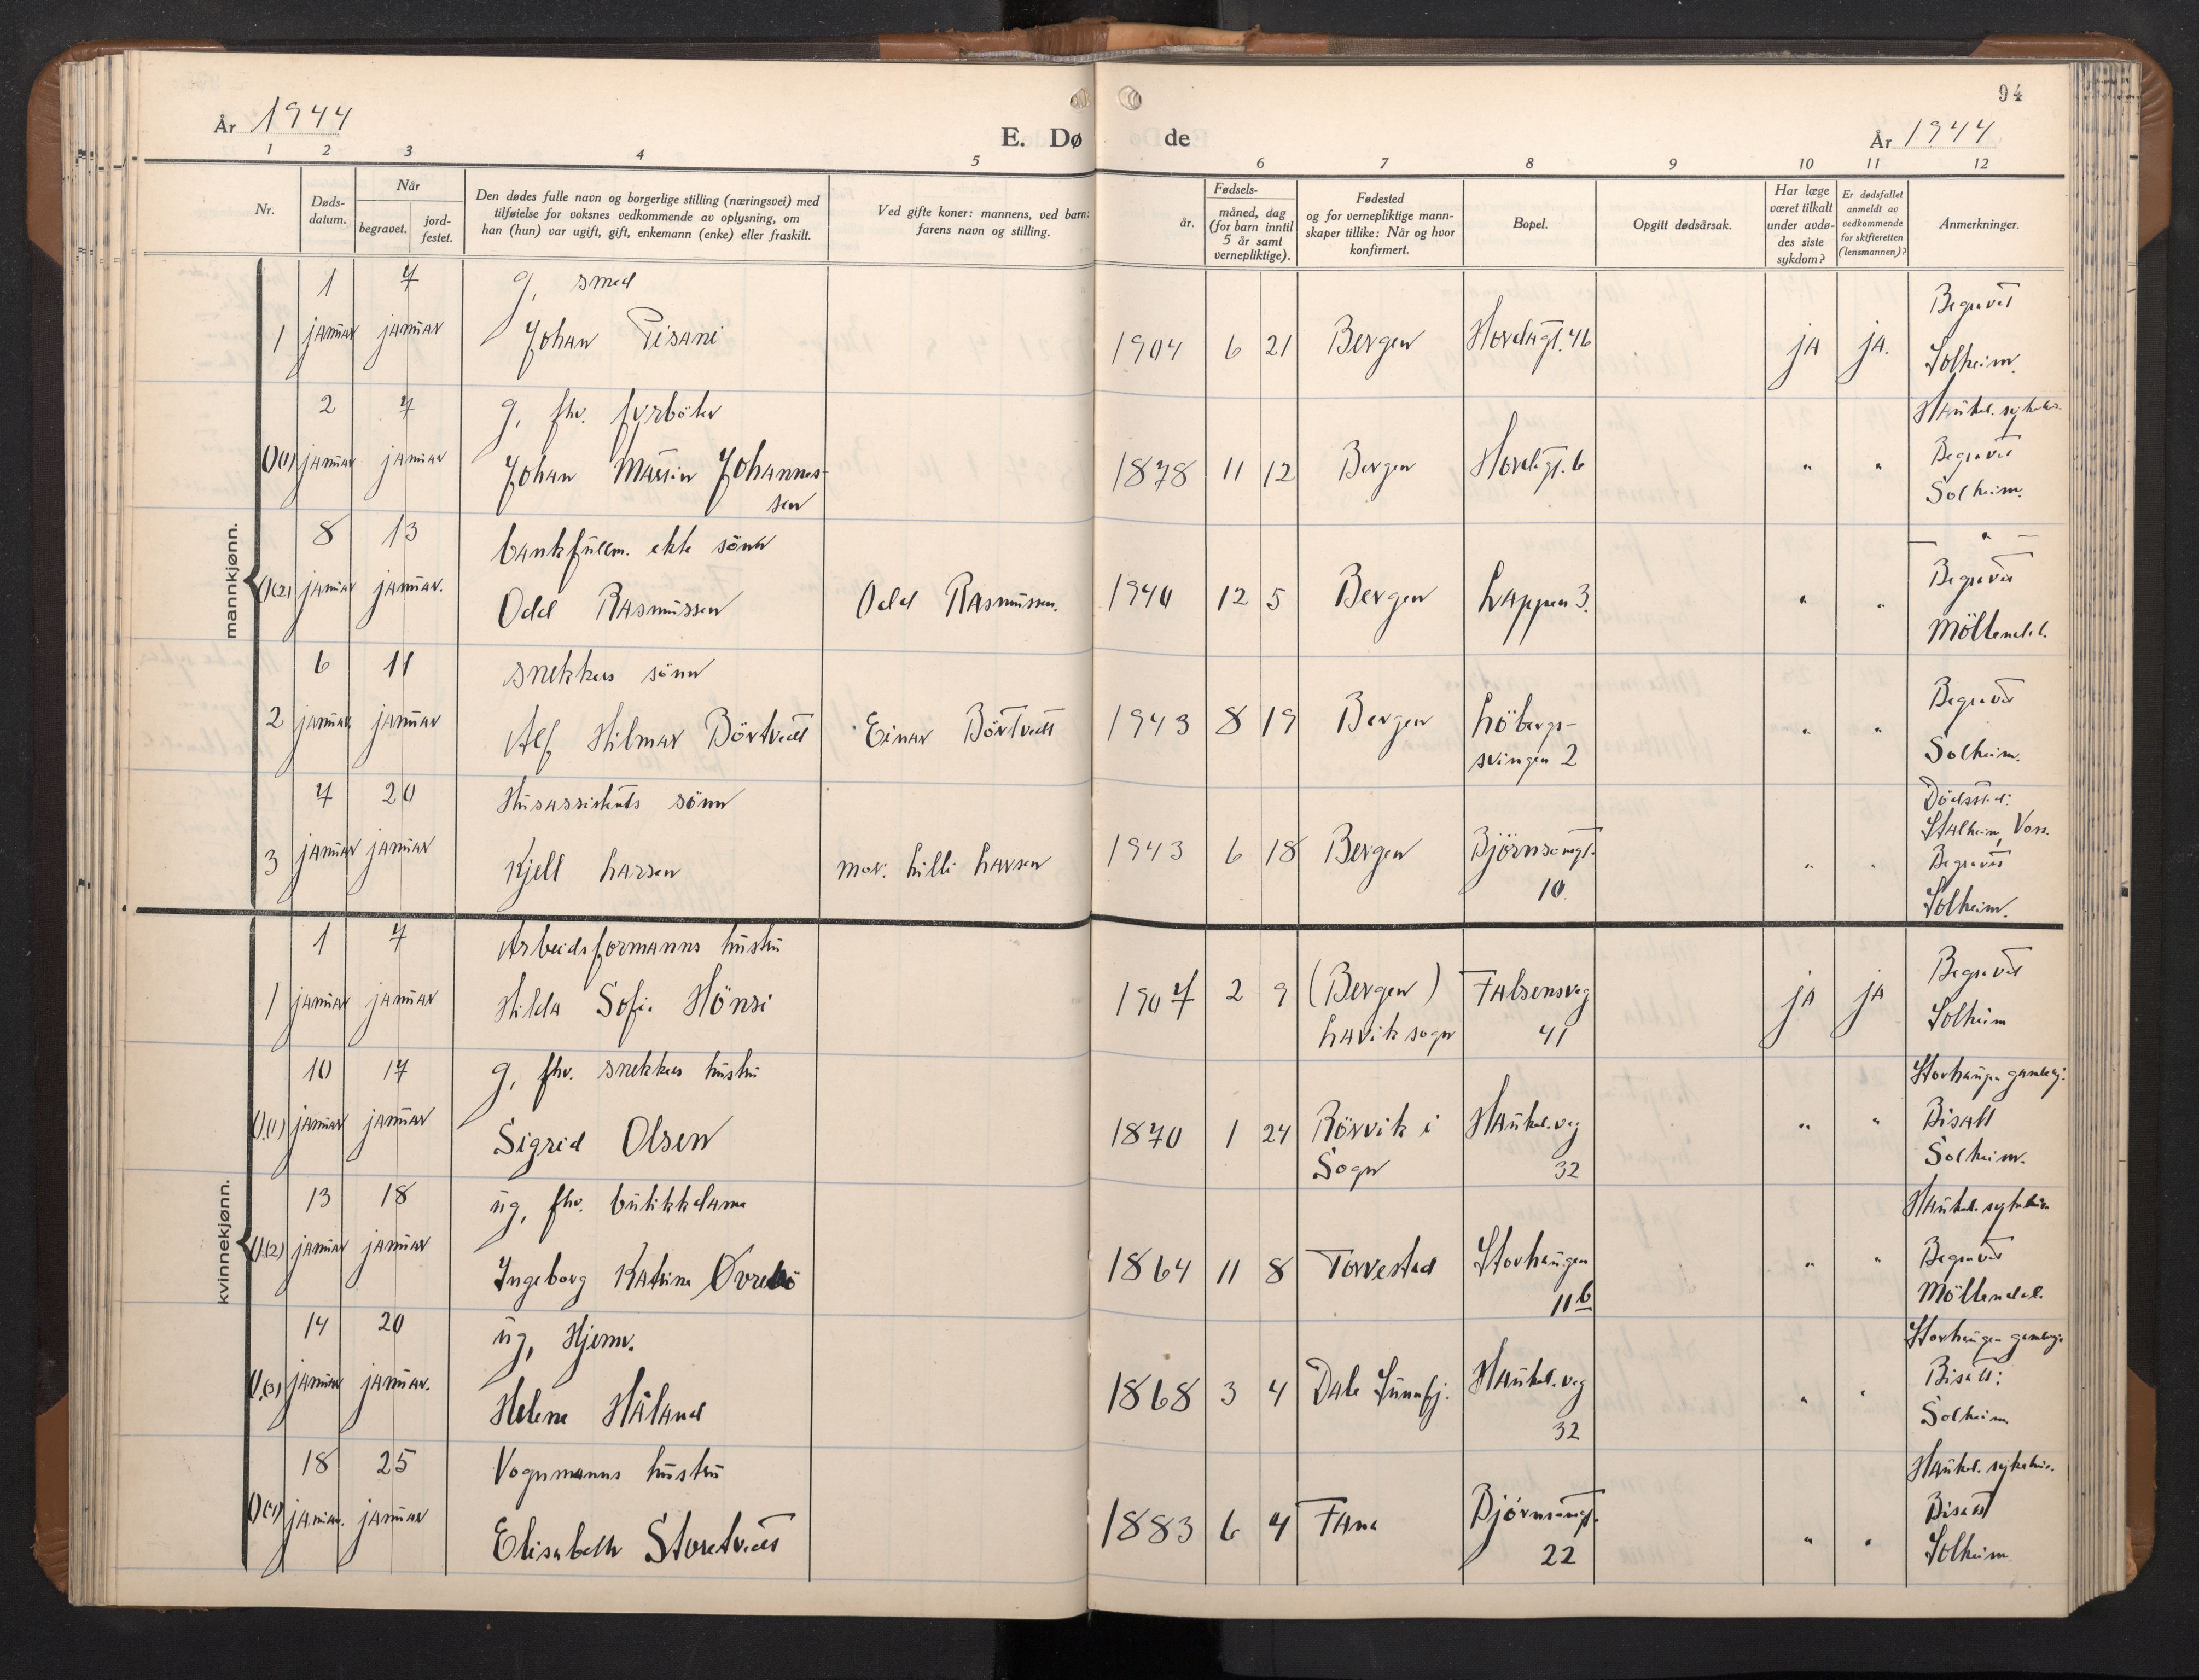 94
År 1944
E. Dø
de
År 1944
1 2 3 4 5 6 7 8 9 10 11 12
Nr.
Døds-
datum.
Når
begravet.
jord-
festet.
Den dødes fulle navn og borgerlige stilling (næringsvei) med
tilføielse for voksnes vedkommende av oplysning, om
han (hun) var ugift, gift, enkemann (enke) eller fraskilt.
Ved gifte koner: mannens, ved barn:
farens navn og stilling.
Fødsels-
år.
måned, dag
(for barn inntil
5 år samt
vernepliktige).
Fødested
og for vernepliktige mann-
skaper tillike: Når og hvor
konfirmert.
Bopel.
Opgitt dødsårsak.
Har læge
været tilkalt
under avdø-
des siste
sykdom?
Er dødsfallet
anmeldt av
vedkommende
for skifteretten
(lensmannen)?
Anmerkninger.
mannkjønn.
1 7 g, smed Begravet
1 januar januar Johan Pisani 1904 6 21 Bergen Hordagt. 46 ja ja.
Solheim.
2 7 g, fhv. fyrböter Haukel. sykehus.
(1) januar januar Johan Martin Johannes- 1878 11 12 Bergen Hordagt. 6 " " Begravet
sen Solheim.
8 13 bankfullm. ekte sönn — " —
(2) januar januar. Odd Rasmussen Odd Rasmussen. 1940 12 5 Bergen Lappen 3. " " Begravet
Möllendal.
6 11 snekkers sönn Begravet
2 januar januar Alf Hilmar Börtveit Einar Börtveit 1943 8 19 Bergen Löbergs- " "
svingen 2 Solheim.
7 20 Husassistents sönn Dödssted:
Stalheim, Voss.
3 januar januar Kjell Larsen mor: Lilli Larsen 1943 6 18 Bergen Björnsonsgt. " " Begravet
10. Solheim.
kvinnekjønn.
1 7 Arbeidsformanns hustru Begravet
1 januar januar Hilda Sofie Hönsi 1907 2 9 (Bergen) Falsensveg ja ja
Lavik sogn 41 Solheim
10 17 g, fhv. snekkers hustru Storhaugen gamlehj.
(1) januar januar Sigrid Olsen 1870 1 24 Rörvik i Haukel. veg " " Bisatt
Sogn 32 Solheim.
13 18 ug, fhv. butikkdame Haukel. sykehus
(2) januar januar Ingeborg Katrine Øvrebö 1864 11 8 Torvestad Storhaugen " " Begravet
11b Möllendal.
14 20 ug, Hjemv. Storhaugen gamlehj.
(3) januar januar. Helene Håland 1868 3 4 Dale Sunnfj. Haukel. veg " " Bisatt:
32 Solheim
18 25 Vognmanns hustru Haukel. sykehus.
(4) januar. januar Elisabeth Storetveit 1883 6 4 Fana Björnsonsgt. " " Bisatt
22 Solheim